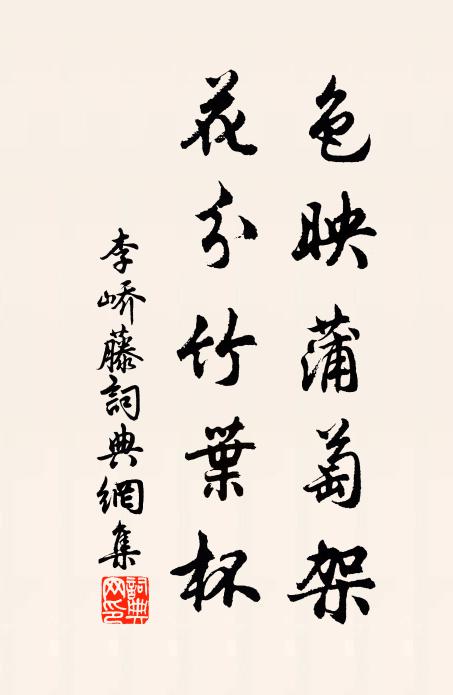 色映蒲萄架
花分竹葉杯
李嶠藤詞典網集
詞典网印